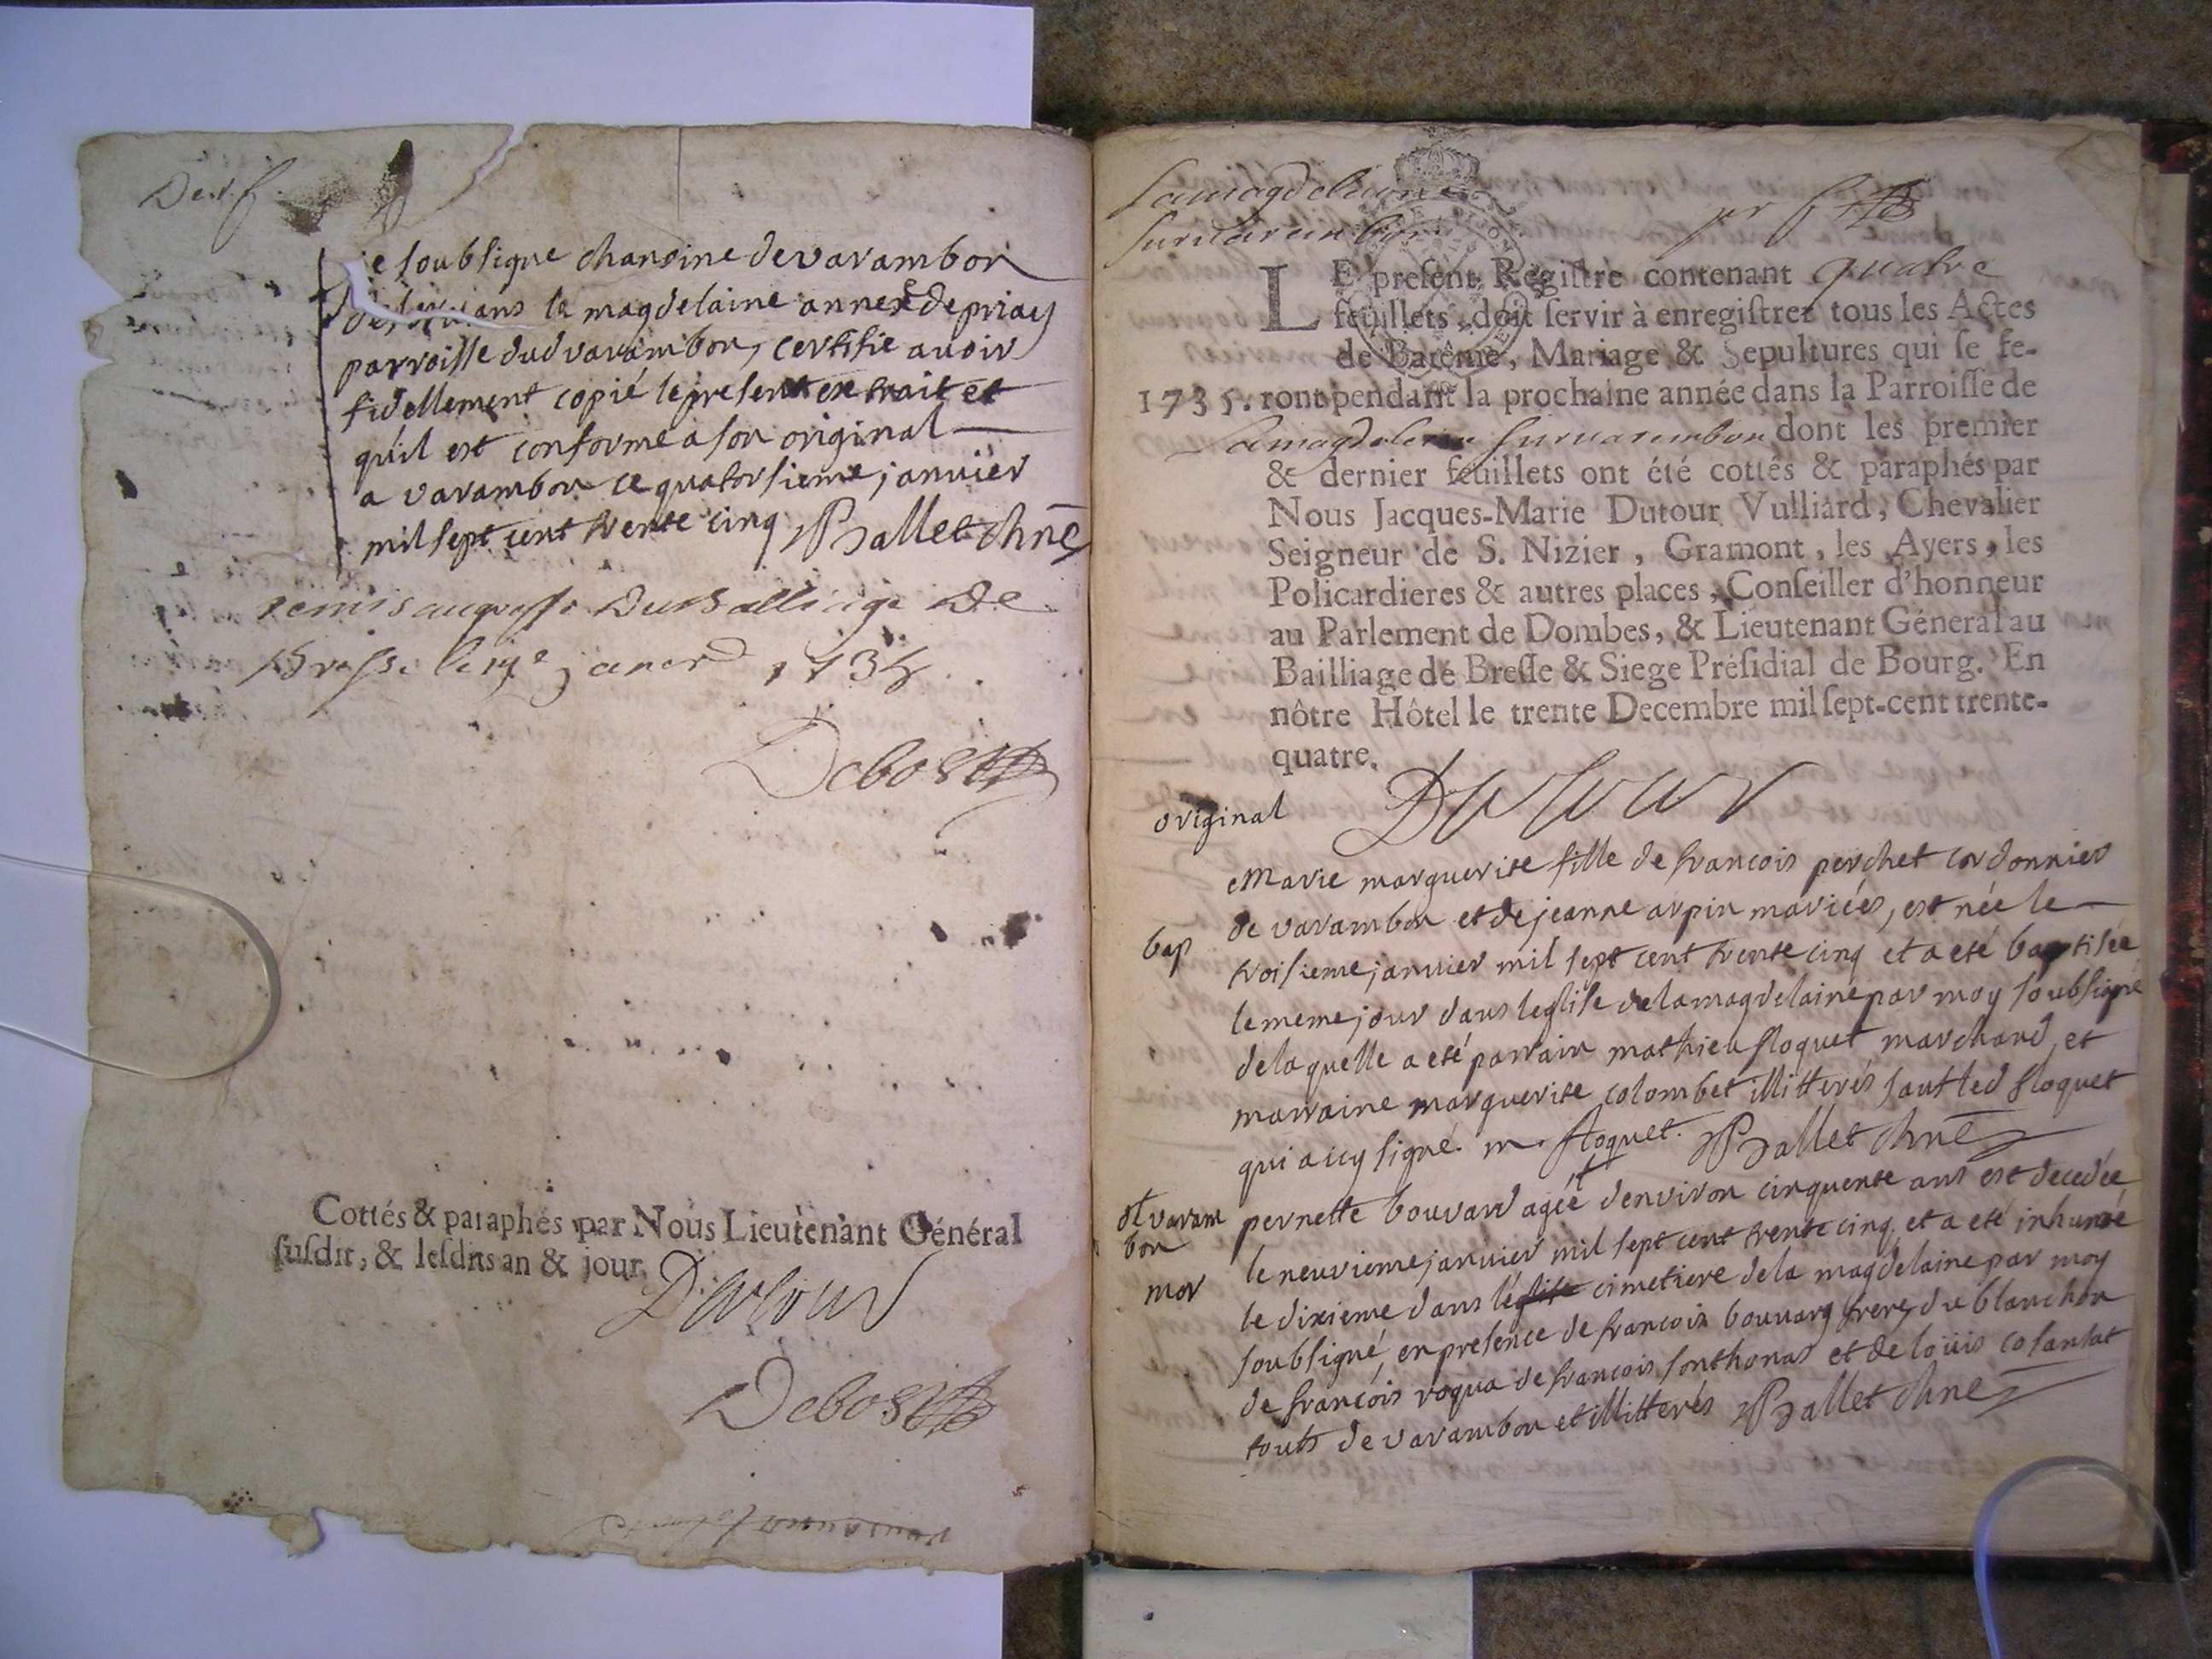 Je soubsigne chanoine de varambon
deservans la magdelaine annexe de priay
parroisse dud varambon, certifie avoir
fidellement copié le present extrait et
qu'il est conforme a son original
a varambon ce quatorsieme janvier
mil sept cent trente cinq Ballet chne
remis au greffe Du Balliage De
Bresse le janer
Debost
Cottés & paraphés par Nous Lieutenant Général
susdit, & lesdits an & jour.
Dutour
Debost
Lamagdelaine
Survarambon
LE present Régistre contenant quatre
feüillets, doit servir à enregistrer tous les Actes
de Batême, Mariage & Sepultures qui se fe-
1735. ront pendant la prochaine année dans la Parroisse de
Lamagdelene survarembon dont les premier
& dernier feüillets ont été cottés & paraphés par
Nous Jacques-Marie Dutour Vulliard, Chevalier
Seigneur de S. Nizier, Gramont, les Ayers, les
Policardieres & autres places, Conseiller d'honneur
au Parlement de Dombes, & Lieutenant Géneral au
Bailliage de Bresse & Siege Présidial de Bourg. En
nôtre Hôtel le trente Decembre mil sept-cent trente-
quatre.
Dutour
original
Marie marguerite fille de francois perchet cordonnier
de varambon et de jeanne arpin mariées, est née le
bap
troisieme janvier mil sept cent trente cinq et a eté baptisée
le meme jour dans leglise de la magdelaine par moy soubsigné
de laquelle a eté parrain mathieu floquet marchand, et
marraine marguerite colombet illitterés sauf led floquet
qui a icy signé. m. floquet. Ballet chne
de varam
bon
mor
pernette bouvard agée denviron cinquente ans est decedée
le neuvieme janvier mil sept cent trente cinq, et a eté inhumé
le dixieme dans léglise cimetiere de la magdelaine par moy
soubsigné, en presence de francois bouvard frere, du blanchon
de francois roqua de francois sonthonas et de loüis cosantat
touts de varambon et illitterés Ballet chne